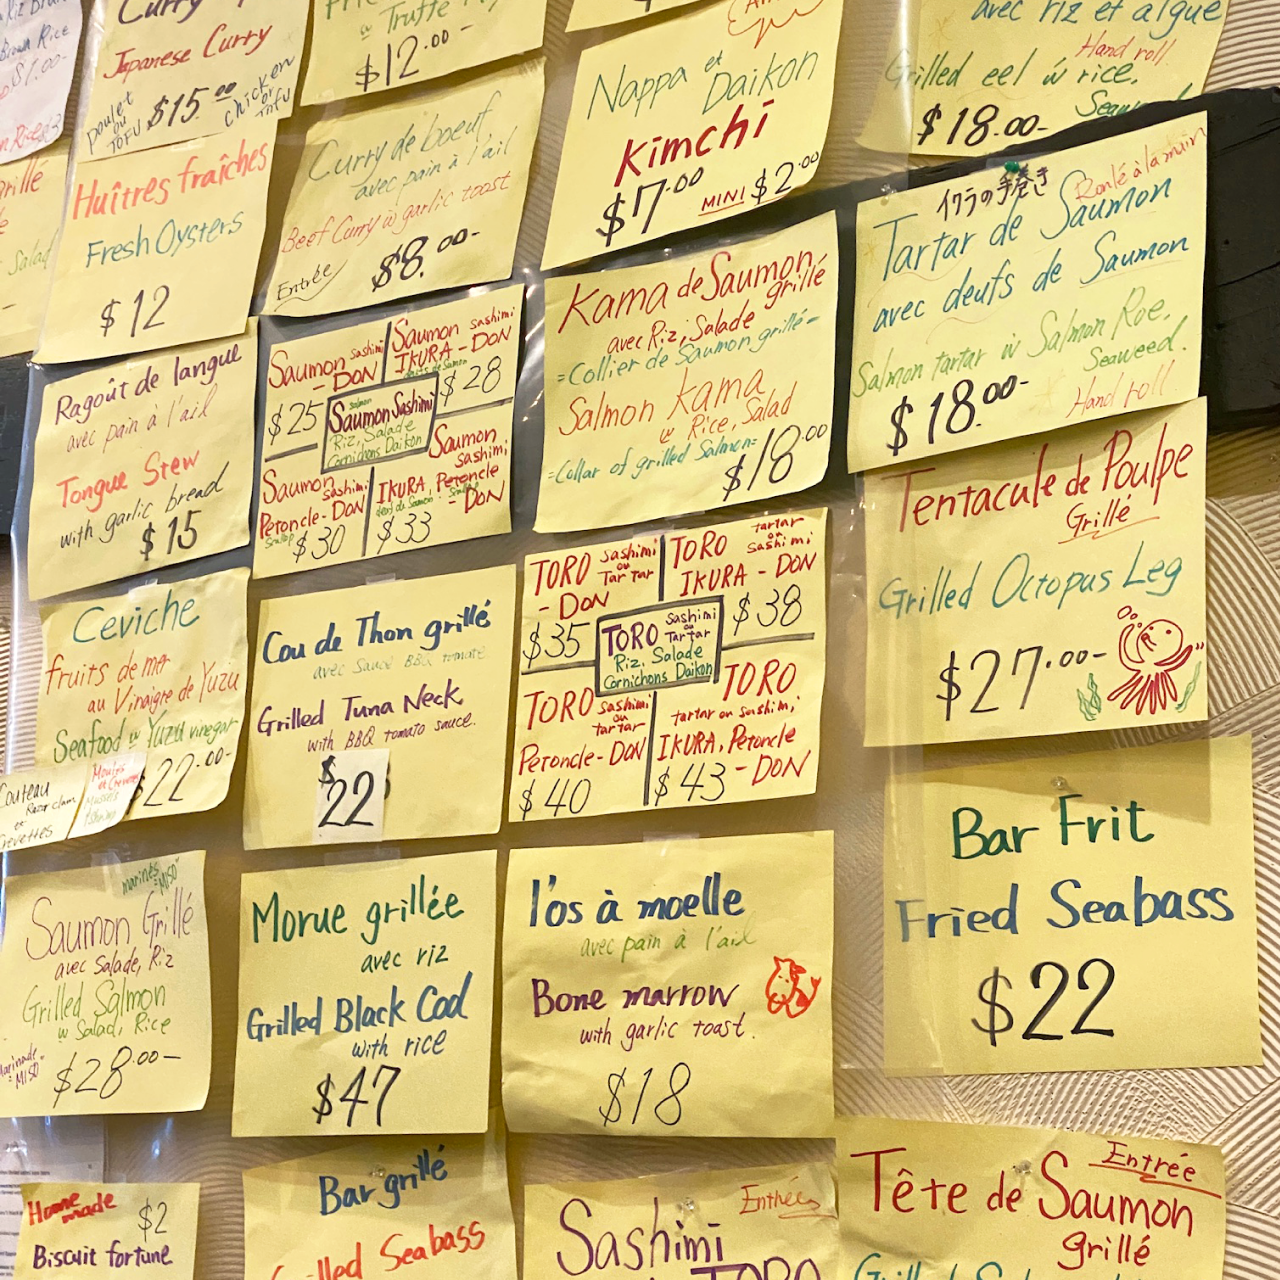 Brown Rice
$1.00-
Curry
Japanese Curry
$15.00
Poulet
ou
TOFU
chicken
or
TOFU
Truffe
$12.00-
Nappa et
Daikon
Kimchi
$7.00
MINI $2.00
avec riz et algue
Hand roll
Grilled eel w rice.
$18.00-
Huîtres fraîches
Fresh Oysters
$12
Curry de boeuf
avec pain à l'ail
Beef Curry w garlic toast
Entrée
$8.00-
イクラの手巻き
Roulé à la main
Tartar de Saumon
avec deufs de Saumon
Salmon tartar w Salmon Roe.
Seaweed.
$18.00-
Hand roll
Ragoût de langue
avec pain à l'ail
Tongue Stew
with garlic bread
$15
Saumon sashimi
- DON
$25
Saumon sashimi
IKURA - DON
$28
Saumon Sashimi
Riz, Salade
Cornichons Daikon
Saumon sashimi
Petoncle - DON
$30
Saumon
sashimi,
IKURA, Petoncle
- DON
$33
Kama de Saumon
grillé
avec Riz, Salade
=Collier de Saumon grillé=
Salmon kama
w Rice, Salad
=Collar of grilled Salmon=
$18.00
Tentacule de Poulpe
Grillé
Grilled Octopus Leg
$27.00-
Ceviche
fruits de mer
au Vinaigre de Yuzu
Seafood w Yuzu vinegar
$22.00-
Couteau
Razor clam
et
Crevettes
Cou de Thon grillé
avec Sauce BBQ tomate
Grilled Tuna Neck
with BBQ tomato sauce.
$22
TORO sashimi
ou
Tartar
- DON
$35
TORO tartar
ou
sashimi
IKURA - DON
$38
TORO Sashimi
ou
Tartar
Riz, Salade
Cornichons Daikon
TORO sashimi
ou
tartar
Petoncle - DON
$40
TORO
tartar ou sashimi,
IKURA, Petoncle
- DON
$43
Bar Frit
Fried Seabass
$22
marinés
"MISO"
Saumon Grillé
avec Salade, Riz
Grilled Salmon
w Salad, Rice
$28.00-
MISO
Morue grillée
avec riz
Grilled Black Cod
with rice
$47
l'os à moelle
avec pain à l'ail
Bone marrow
with garlic toast.
$18
Home
made
$2
Biscuit fortune
Bar grillé
Grilled Seabass
Entrée
Sashimi
TORO
Entrée
Tête de Saumon
grillé